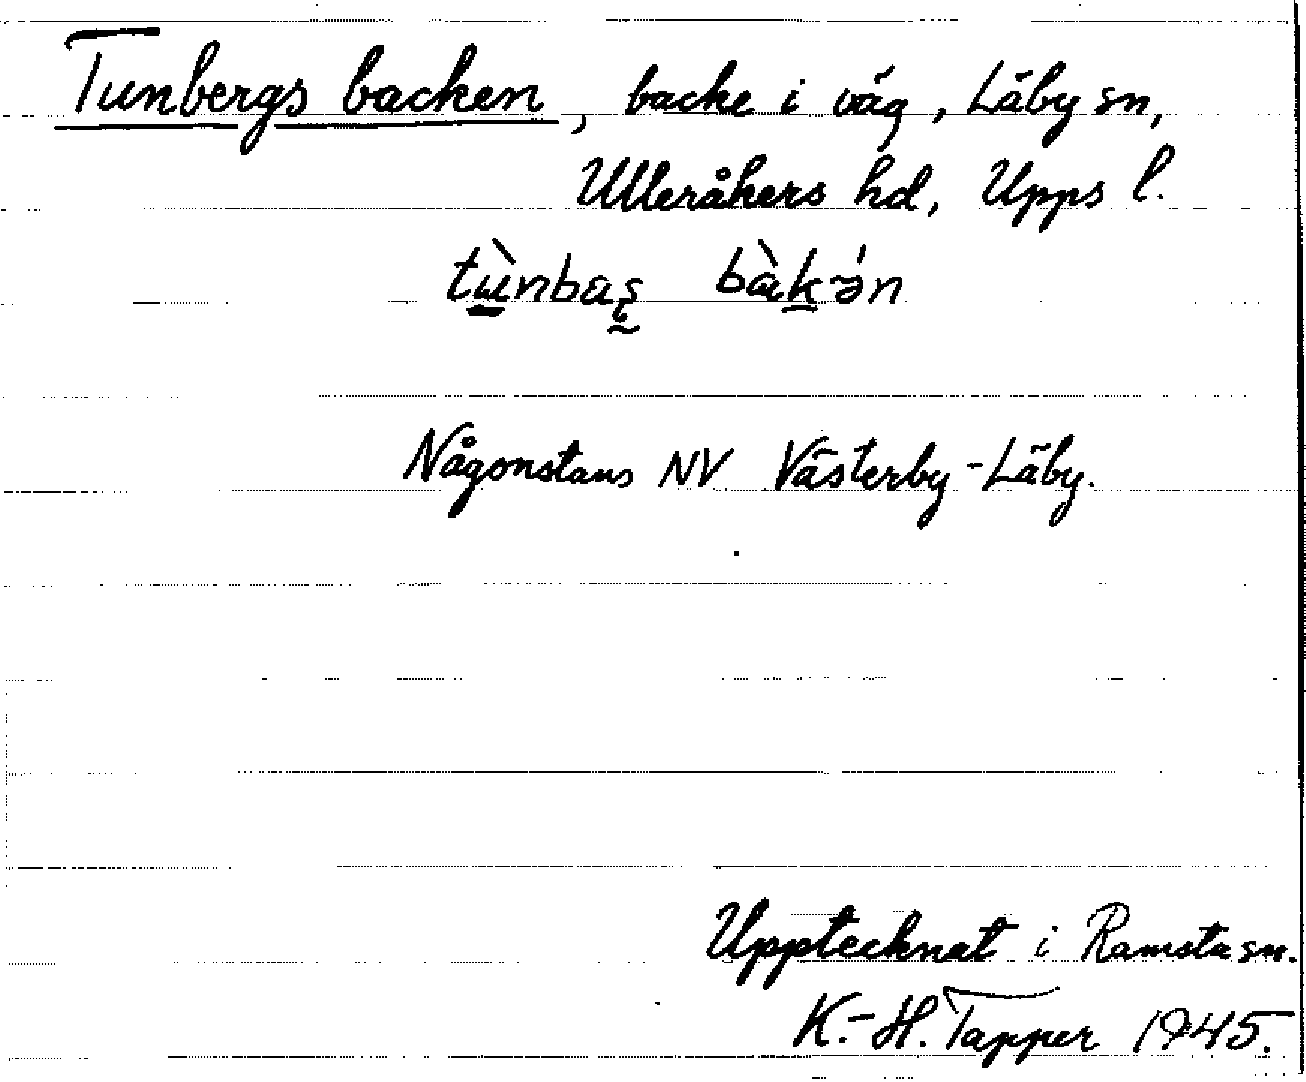 Tunbergs backen, backe i väg, Läby sn,
Ulleråkers hd, Upps l.
tù̲nbaş bàk̲-ǝ́n
Någonstans NV Västerby-Läby.
Upptecknat i Ramsta sn.
K.-H. Tapper 1945.